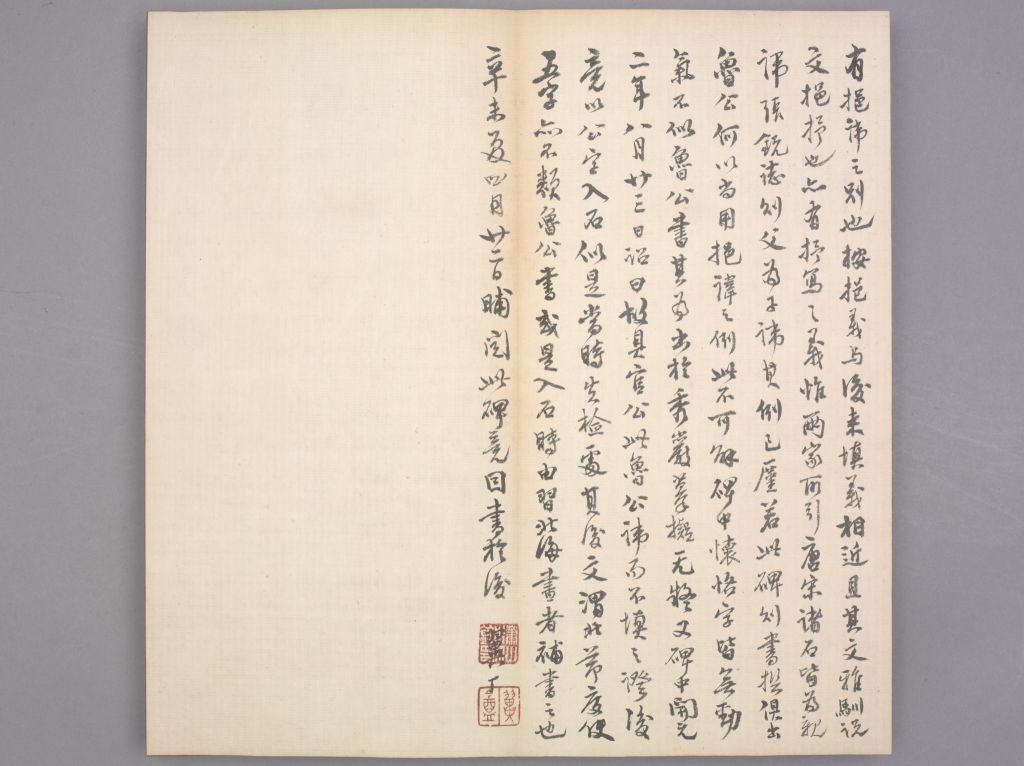 有挹諱之別也按挹義与後来填義相近且其文雅馴说
文挹抒也亦有抒寫之義惟兩家所引唐宋諸石皆為親
諱張銳志则父為子諱其例已廑若此碑则書撰俱出
魯公何以尚用挹諱之例此不可解碑中懷悟字皆無動
氣不似魯公書其為出於秀巖摹擬无疑又碑中開元
二年八月廿三日诏曰故具官公此魯公諱而不填之證後
竟以公字入石似是當時失检處其後文渭北節度使
五字亦不類魯公書或是入石時由習北海書者補書之也
辛未夏四月廿二日晡阅此碑竟因書於後